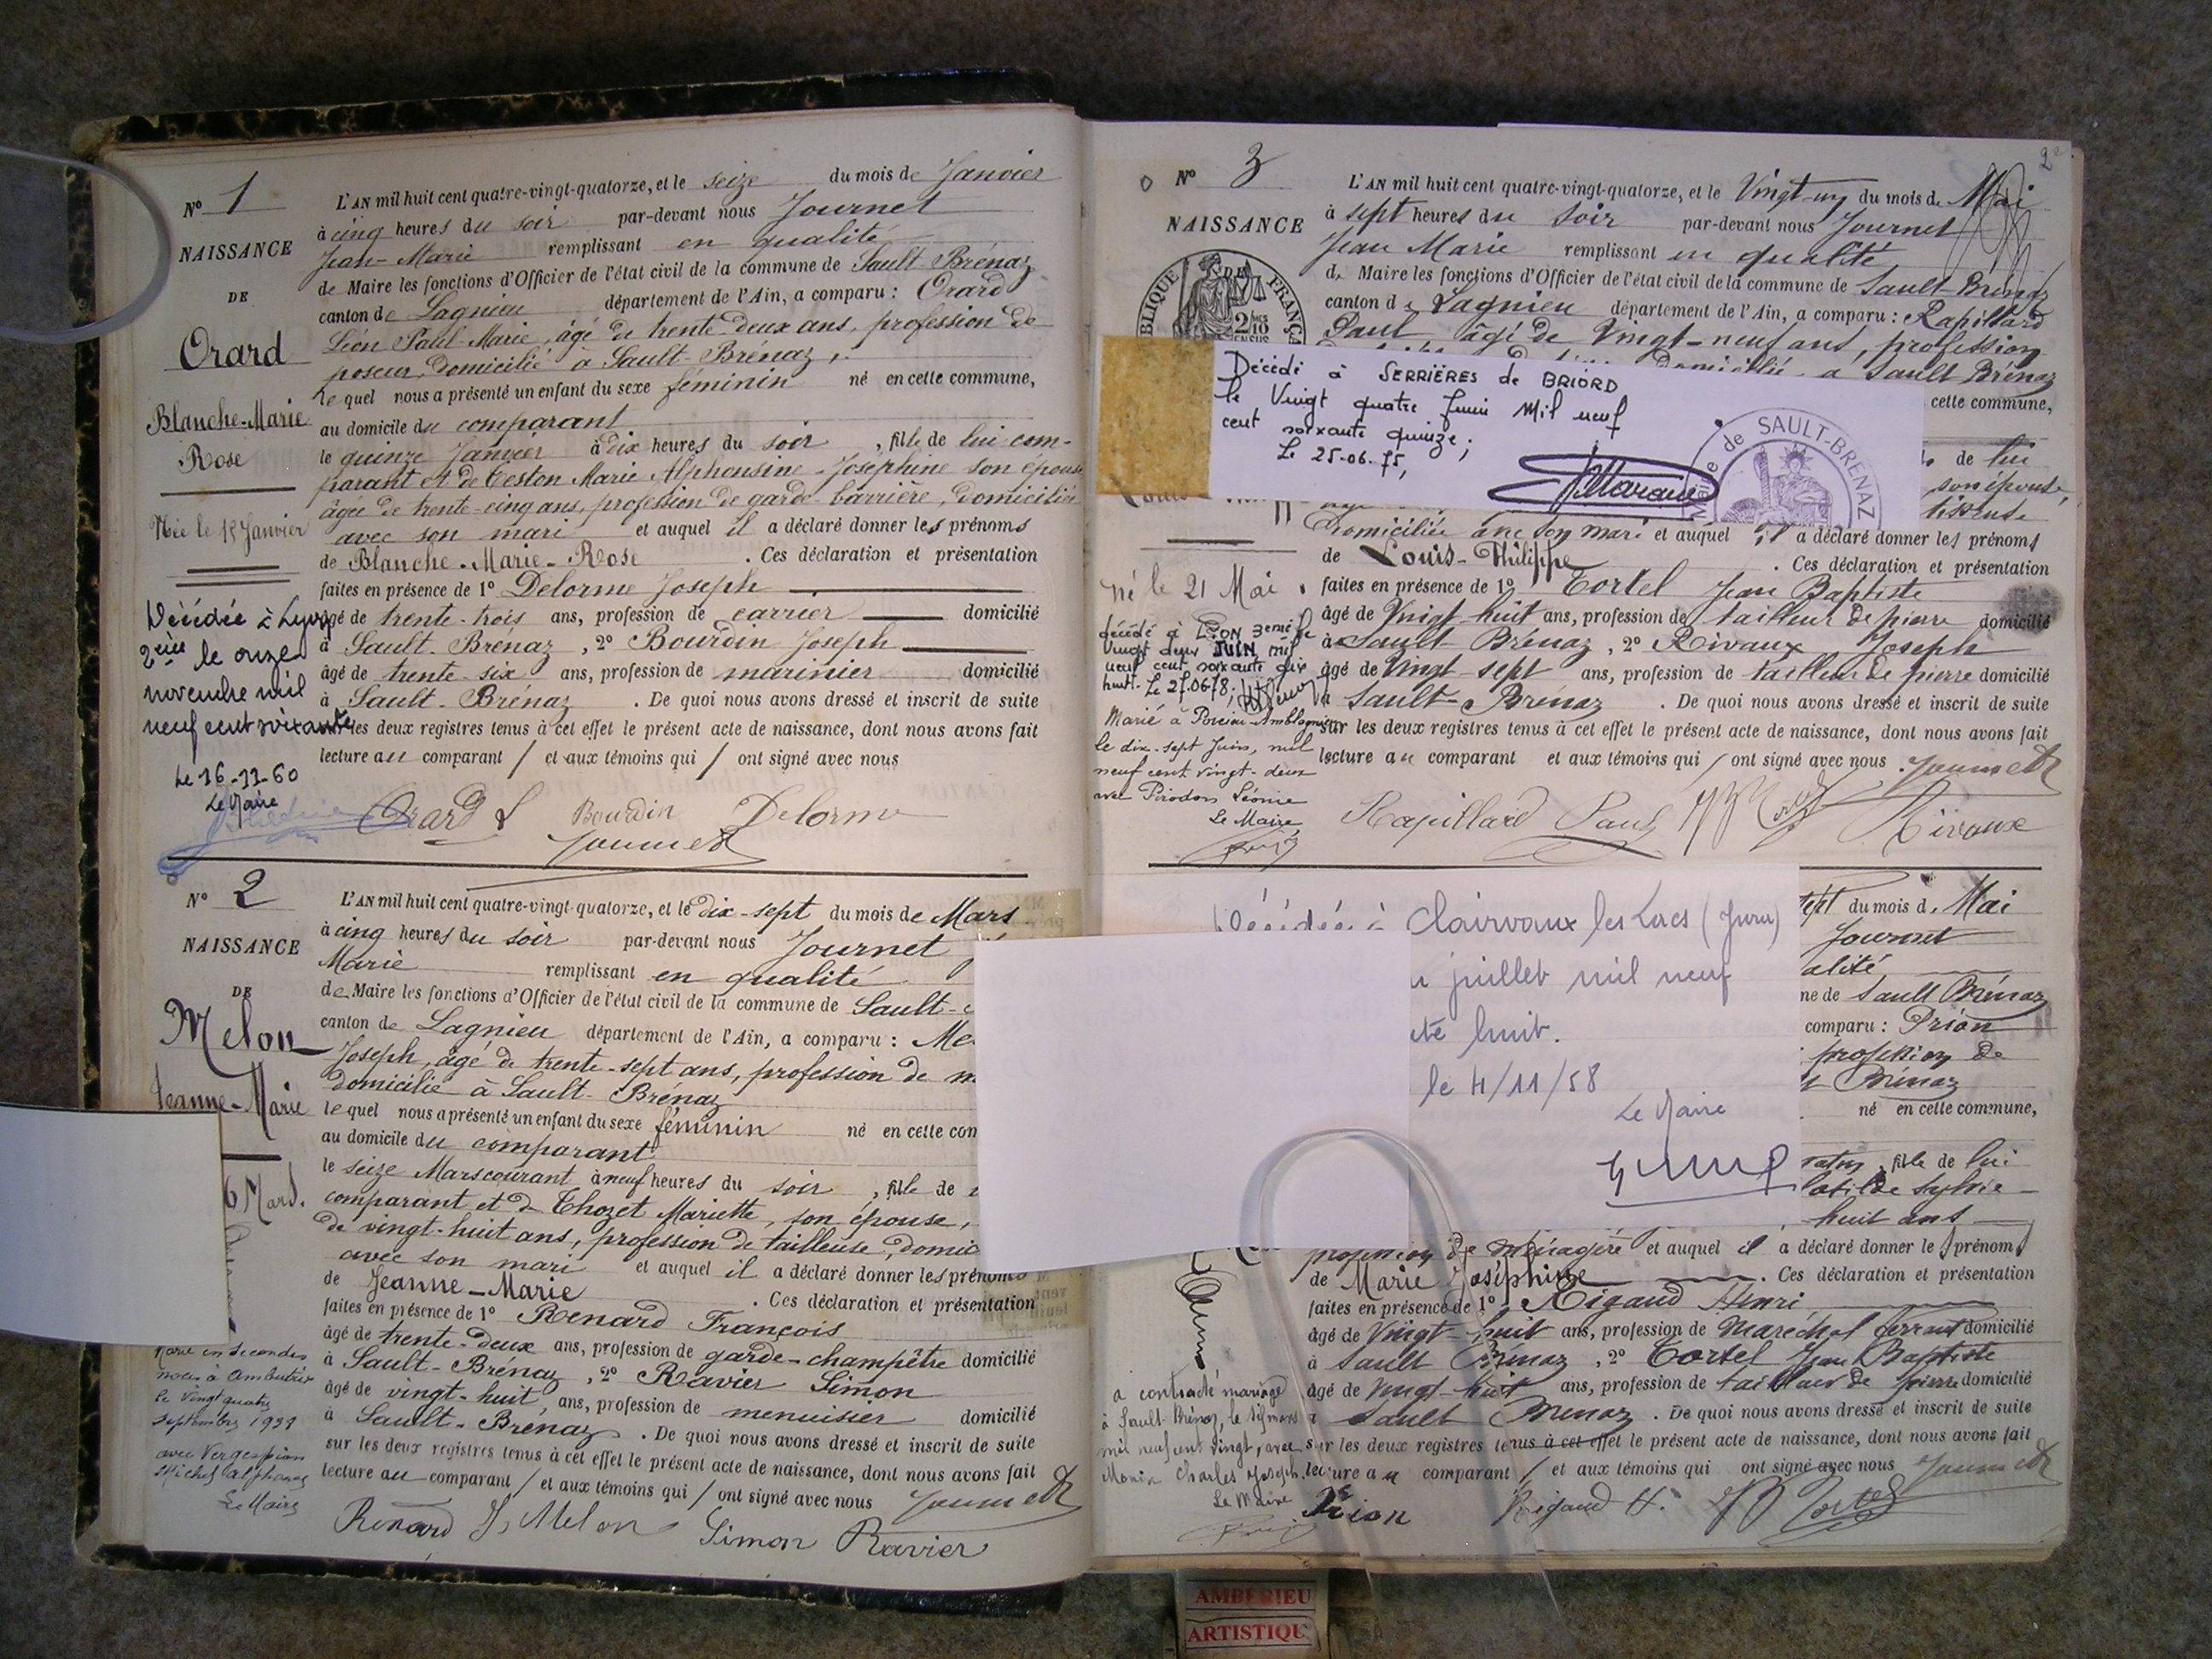 Nº 1
NAISSANCE
DE
Orard
Blanche-Marie
Rose
Née le 15 Janvier
Décédée à Lyon
2ème le onze
novembre mil
neuf cent soixante
Le 16-11-60
Le Maire
L'AN mil huit cent quatre-vingt-quatorze, et le seize du mois de Janvier
à cinq heures du soir par-devant nous Journet
Jean-Marie remplissant en qualité
de Maire les fonctions d'Officier de l'état civil de la commune de Sault-Brénaz
canton de Lagnieu département de l'Ain, a comparu : Orard
Léon Paul-Marie, âgé de trente-deux ans, profession de
poseur, domicilié à Sault-Brénaz,
le quel nous a présenté un enfant du sexe féminin né en cette commune,
au domicile du comparant
le quinze Janvier à dix heures du soir, fille de lui com-
parant et de Teston Marie Alphonsine-Josephine son épouse
âgée de trente-cinq ans, profession de garde-barrière, domiciliée
avec son mari et auquel il a déclaré donner les prénoms
de Blanche-Marie-Rose. Ces déclaration et présentation
faites en présence de 1º Delorme Joseph
âgé de trente-trois ans, profession de carrier domicilié
à Sault-Brénaz, 2º Bourdin Joseph
âgé de trente-six ans, profession de marinier domicilié
à Sault-Brénaz. De quoi nous avons dressé et inscrit de suite
les deux registres tenus à cet effet le présent acte de naissance, dont nous avons fait
lecture au comparant / et aux témoins qui / ont signé avec nous
Orard L Bourdin Delorme
Journet
Nº 2
NAISSANCE
DE
Melon
Jeanne-Marie
6 Mars.
Marié en secondes
noces à Ambutrix
le vingt quatre
septembre 1939
avec Vergespian
Michel alphonse
Le Maire
L'AN mil huit cent quatre-vingt-quatorze, et le dix-sept du mois de Mars
à cinq heures du soir par-devant nous Journet
Marie remplissant en qualité
de Maire les fonctions d'Officier de l'état civil de la commune de Sault-
canton de Lagnieu département de l'Ain, a comparu : Me
Joseph, âgé de trente-sept ans, profession de m
domicilié à Sault-Brénaz
le quel nous a présenté un enfant du sexe féminin né en cette com
au domicile du comparant
le seize Mars courant à neuf heures du soir, fille de
comparant et de Thozet Mariette, son épouse,
de vingt-huit ans, profession de tailleuse, domic
avec son mari et auquel il a déclaré donner les prénoms
de Jeanne-Marie. Ces déclaration et présentation
faites en présence de 1º Renard François
âgé de trente-deux ans, profession de garde-champêtre domicilié
à Sault-Brénaz, 2º Ravier Simon
âgé de vingt-huit ans, profession de menuisier domicilié
à Sault-Brénaz. De quoi nous avons dressé et inscrit de suite
sur les deux registres tenus à cet effet le présent acte de naissance, dont nous avons fait
lecture au comparant / et aux témoins qui / ont signé avec nous Journet
Renard J. Melon Simon Ravier
2
Nº 3
NAISSANCE
BLIQUE FRANÇA
2/10
L'AN mil huit cent quatre-vingt-quatorze, et le Vingt-un du mois de Mai
à sept heures du soir par-devant nous Journet
Jean Marie remplissant en qualité
de Maire les fonctions d'Officier de l'état civil de la commune de Sault-Brénaz
canton de Lagnieu département de l'Ain, a comparu : Rapillard
Paul âgé de Vingt-neuf ans, profession
domicilié à Sault Brénaz
cette commune,
Décédé à SERRIÈRES de BRIORD
le Vingt quatre Juin Mil neuf
cent soixante quinze;
Le 25-06-75,
de SAULT-BRENAZ
de lui
son épouse,
tisseuse
domiciliée avec son mari et auquel il a déclaré donner les prénoms
de Louis-Philippe. Ces déclaration et présentation
né le 21 Mai
faites en présence de 1º Tortel Jean Baptiste
âgé de Vingt huit ans, profession de tailleur de pierre domicilié
à Sault Brénaz, 2º Rivaux Joseph
âgé de Vingt sept ans, profession de tailleur de pierre domicilié
à Sault-Brénaz. De quoi nous avons dressé et inscrit de suite
sur les deux registres tenus à cet effet le présent acte de naissance, dont nous avons fait
lecture au comparant et aux témoins qui / ont signé avec nous. Journet
décédé à LYON 3eme le
vingt deux JUIN mil
neuf cent soixante dix
huit. Le 27.06.78;
Marié à Porcieu-Amblagnieu
le dix-sept Juin, mil
neuf cent vingt-deux
avec Pirodon Léonie
Le Maire,
Rapillard Paul Rivaux
Décédée à Clairvaux les Lacs (Jura)
juillet mil neuf
huit.
le 4/11/58
Le Maire
sept du mois de Mai
Journet
alité
ne de Sault Brénaz
comparu : Prion
profession de
Brénaz
né en cette commune,
fille de lui
lotilde Sylvie
huit ans
profession de ménagère et auquel il a déclaré donner le prénom
de Marie Joséphine. Ces déclaration et présentation
faites en présence de 1º Rigaud Henri
âgé de Vingt-huit ans, profession de Maréchal ferrant domicilié
à Sault Brénaz, 2º Tortel Jean Baptiste
âgé de Vingt-huit ans, profession de tailleur de pierre domicilié
à Sault Brénaz. De quoi nous avons dressé et inscrit de suite
sur les deux registres tenus à cet effet le présent acte de naissance, dont nous avons fait
lecture au comparant / et aux témoins qui ont signé avec nous Journet
a contracté mariage
à Sault-Brénaz, le six mars
mil neuf cent vingt, avec
Monin Charles Joseph.
Le Maire
Prion Rigaud H. Tortel
AMBERIEU
ARTISTIQU